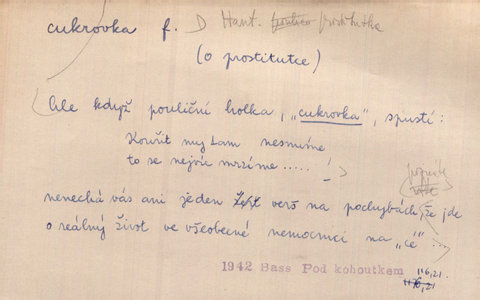 cukrovka f. D Hant. prostitutka
(o prostitutce)
Ale když pouliční holka, „cukrovka", spustí:
Kouřit my tam nesmíme
to se nejvíc mrzíme ..... !
nenechá vás ani jeden verš na pochybách, že jde
o reálný život ve všeobecné nemocnici na „cé" ...
1942 Bass Pod kohoutkem 116,21.